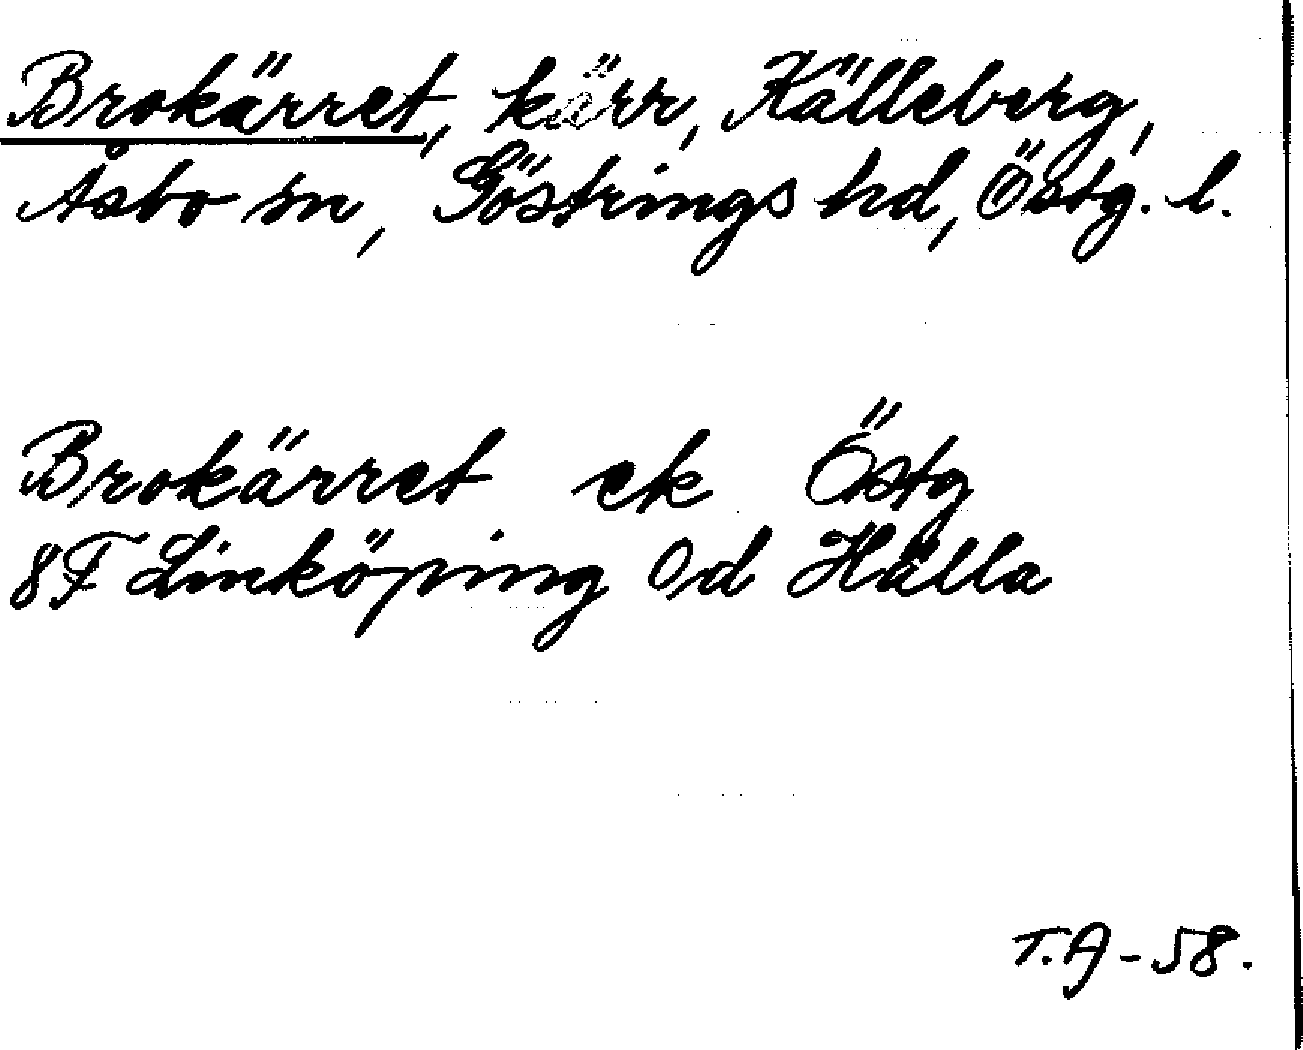 Brokärret, kärr, Källeberg,
Åsbo sn, Göstrings hd, Östg. l.
Brokärret ek Östg
8F Linköping 0d Hälla
T.A-58.